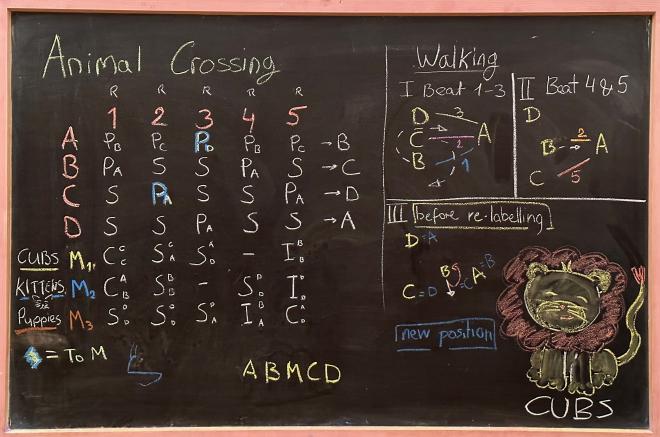 Animal Crossing
R R R R R
1 2 3 4 5
A P_B P_C P_D P_B P_C → B
B P_A S S P_A S → C
C S P_A S S P_A → D
D S S P_A S S → A
CUBS M₁ C^C_C S^C_A S^A_D – I^B_B
KITTENS M₂ C^A_B S^B_B – S^D_D I^D_D
Puppies M₃ S^D_D S^D_D S^D_A I^B_A C^D_A
= TO M
ABMCD
Walking
I Beat 1-3
D 3
C → A
2
B 1
II Beat 4 & 5
D
B → A
2
C 5
III before re-labelling
D = A
B C A = B
C = D
new position
CUBS